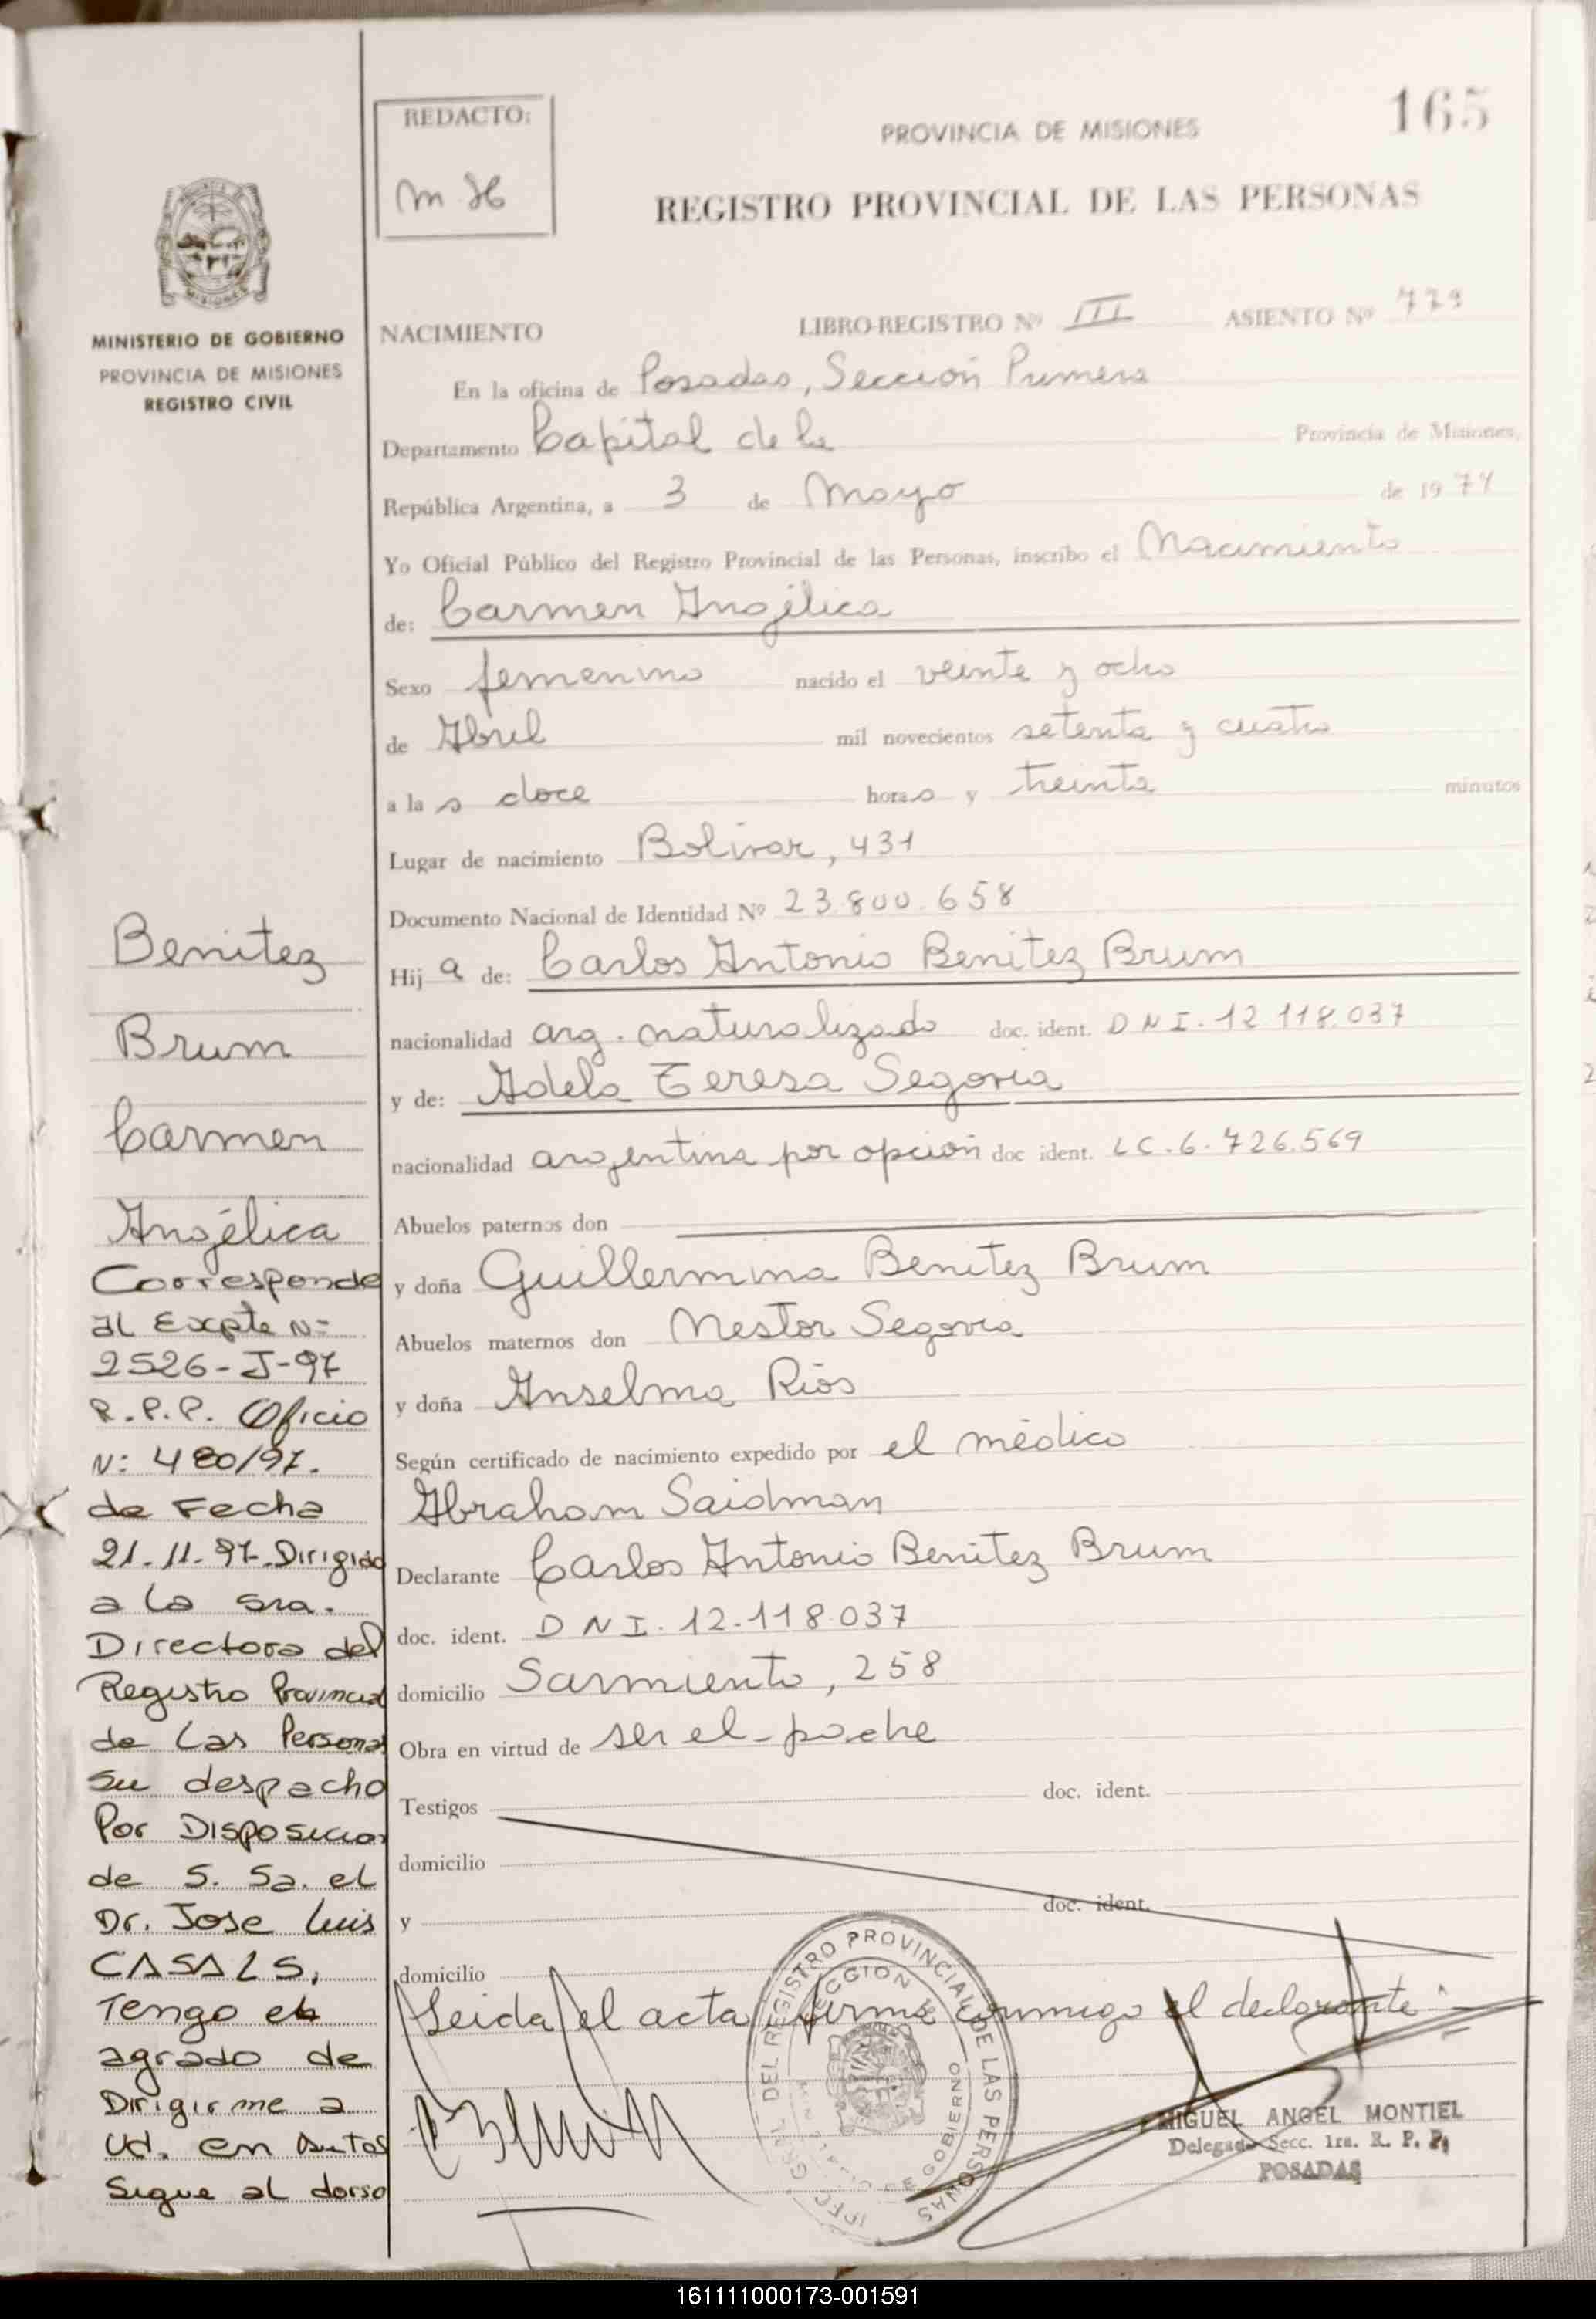 165
REDACTO:
m H
PROVINCIA DE MISIONES
REGISTRO PROVINCIAL DE LAS PERSONAS
MISIONES
MINISTERIO DE GOBIERNO
PROVINCIA DE MISIONES
REGISTRO CIVIL
NACIMIENTO LIBRO-REGISTRO Nº III ASIENTO Nº 779
En la oficina de Posadas, Sección Primera
Departamento Capital de la Provincia de Misiones,
República Argentina, a 3 de Mayo de 1974
Yo Oficial Público del Registro Provincial de las Personas, inscribo el Nacimiento
de: Carmen Angélica
Sexo femenino nacido el veinte y ocho
de Abril mil novecientos setenta y cuatro
a la s doce hora s y treinta minutos
Lugar de nacimiento Bolivar, 431
Documento Nacional de Identidad Nº 23.800.658
Hij a de: Carlos Antonio Benitez Brum
nacionalidad arg. naturalizado doc. ident. DNI. 12 118.037
y de: Adela Teresa Segovia
nacionalidad argentina por opción doc ident. LC. 6.726.569
Abuelos paternos don
y doña Guillermina Benitez Brum
Abuelos maternos don Nestor Segovia
y doña Anselma Ríos
Según certificado de nacimiento expedido por el médico
Abraham Saidman
Declarante Carlos Antonio Benitez Brum
doc. ident. DNI. 12.118.037
domicilio Sarmiento, 258
Obra en virtud de ser el padre
Testigos doc. ident.
domicilio
y doc. ident.
domicilio
Leida el acta firma conmigo el declarante
Benitez
Brum
Carmen
Angélica
Corresponde
al Expte Nº
2526-J-97
R.P.P. Oficio
N: 480/97.
de Fecha
21-11-97 Dirigido
a la Sra.
Directora del
Registro Provincial
de Las Personas
Su despacho
Por Disposicion
de S. Sa. el
Dr. Jose Luis
CASALS,
Tengo el
agrado de
Dirigirme a
Ud. en Autos
Sigue al dorso
REGISTRO PROVINCIAL DE LAS PERSONAS
MIGUEL ANGEL MONTIEL
Delegado Secc. 1ra. R. P. P.
POSADAS
161111000173-001591